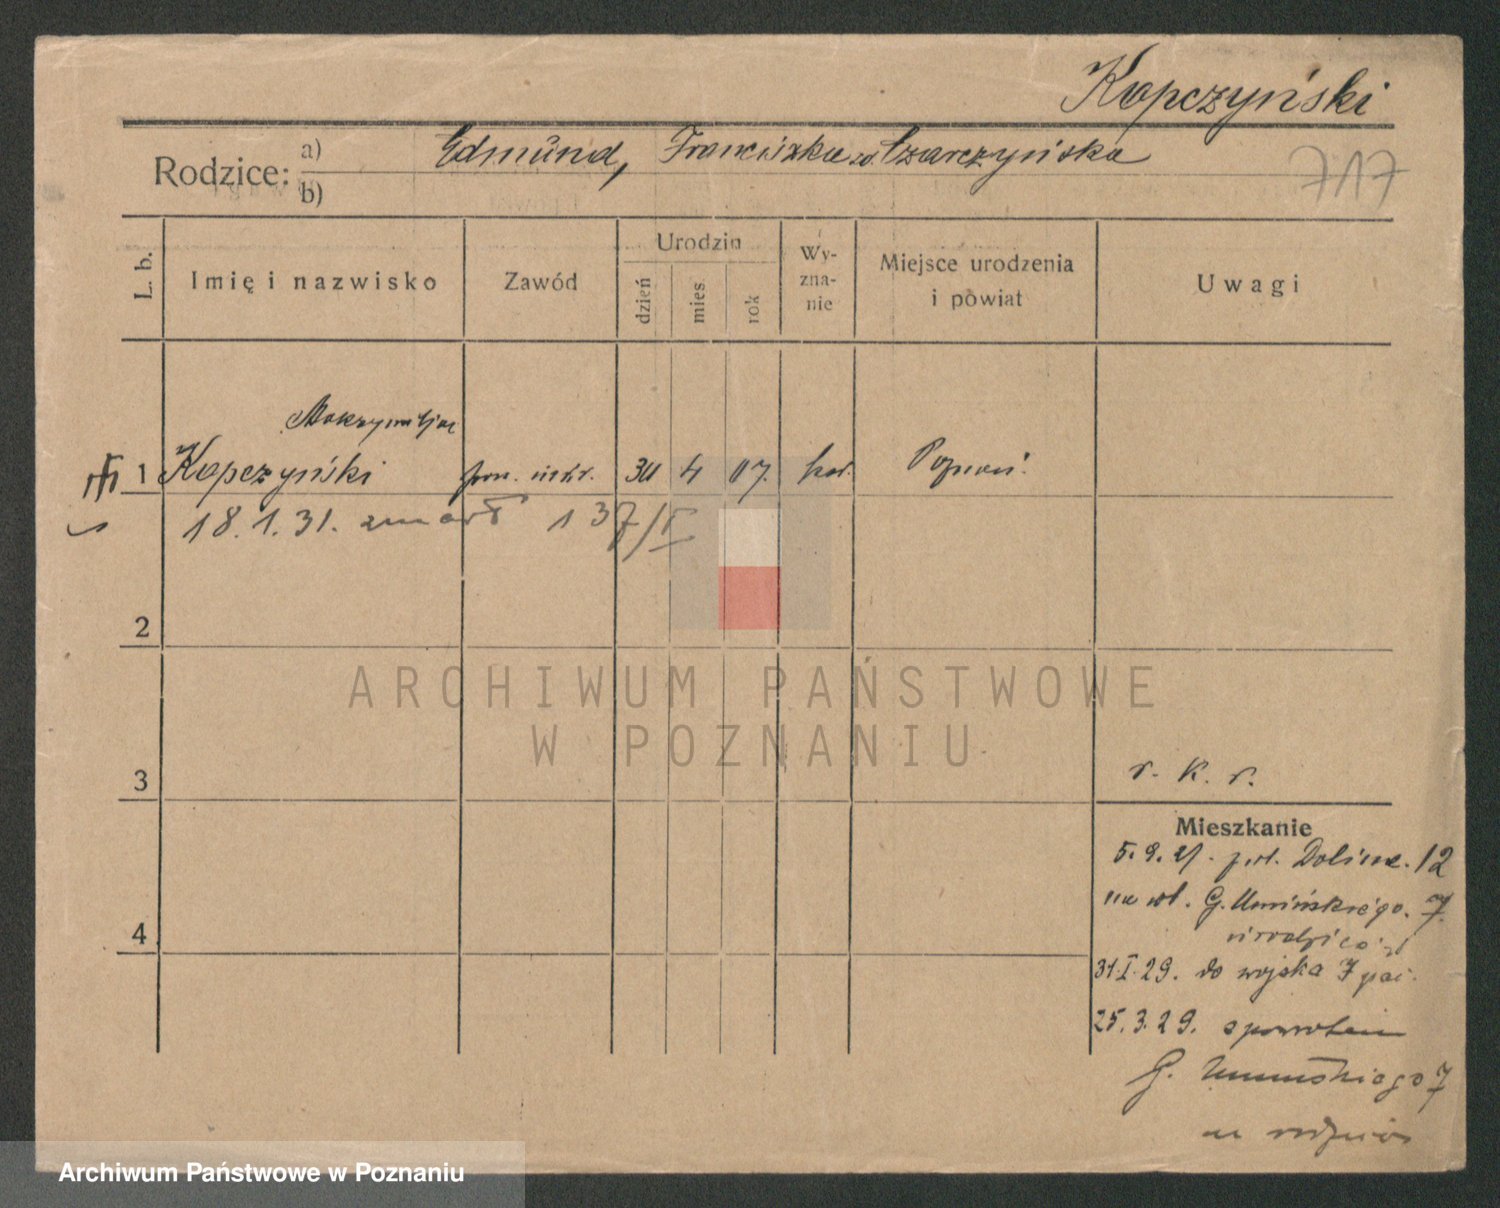 Kopczyński
Rodzice: a) Edmund, Franciszka z Czarczyńska
b)
717
L. b.
Imię i nazwisko
Zawód
Urodzin
dzień
mies
rok
Wy-
zna-
nie
Miejsce urodzenia
i powiat
Uwagi
Maksymiljan
1 Kopczyński 30 4 07. kat. Poznań.
18.1.31. zmarł 137/I
2
ARCHIWUM PAŃSTWOWE
W POZNANIU
3
r. k. r.
Mieszkanie
5.9.21. Dolina. 12
na wł. G. Umińskiego. 7
4
31.I.29. do wojska 7
25.3.29. spowrotem
G. Umińskiego 7
Archiwum Państwowe w Poznaniu